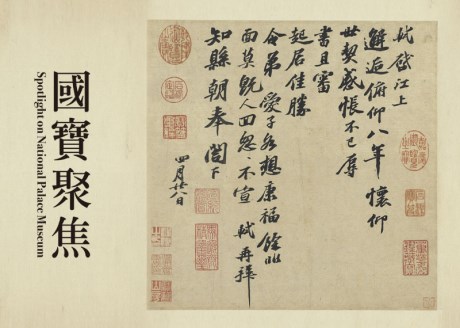 國寶聚焦
Spotlight on National Palace Museum
軾啟江上
邂逅俯仰八年懷仰
世契感悵不已辱
書且審
起居佳勝
令弟愛子各想康福餘非
面莫既人回怱怱不宣軾再拜
知縣朝奉閤下
四月廿八日